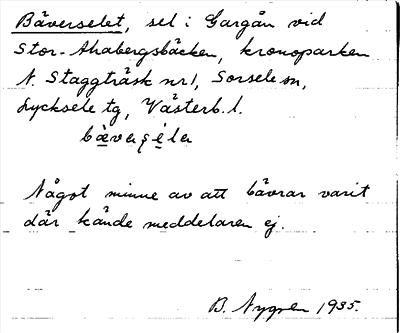 Bäverselet, sel i Gargån vid
Stor-Ahabergsbäcken, kronoparken
N. Staggträsk nr 1, Sorsele sn,
Lycksele tg, Västerb. l.
bä̀vəṣé̩lə
Något minne av att bävrar varit
där kände meddelaren ej.
B. Nygren 1935.